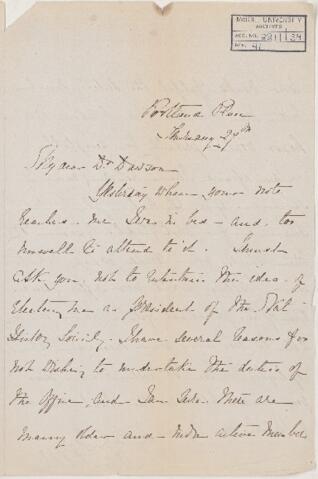 McGILL UNIVERSITY
ARCHIVES
ACC. NO. 2211/34
REF. 41
Portland Place
Thursday 29th
My dear Dr Dawson
Yesterday when your note
reached me I was in bed - and too
unwell to attend to it. I must
ask you not to entertain the idea of
Electing me as President of the Natl
History Society. I have several reasons for
not wishing to undertake the duties of
the Office, and I am sure there are
many older and more active Members